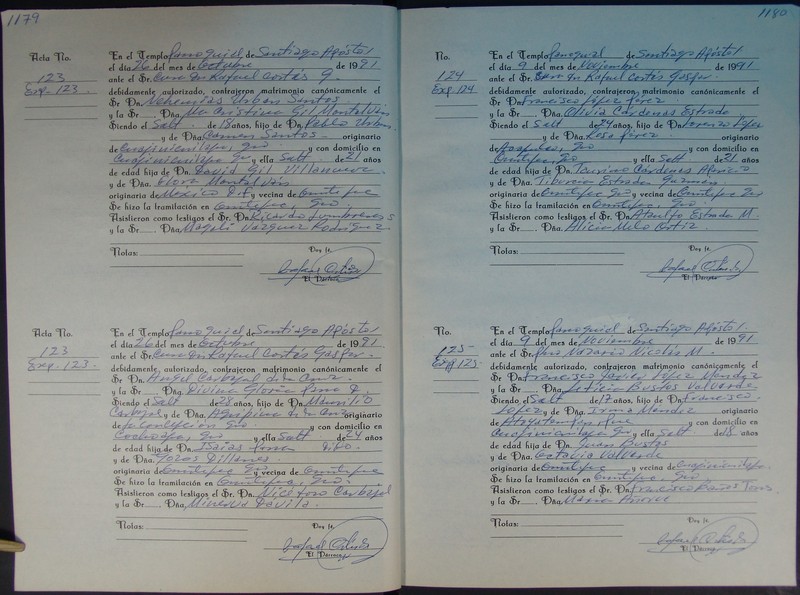 1179
Acta No.
123
Exp. 123.
En el Templo Parroquial de Santiago Apóstol
el día 26 del mes de Octubre de 1991
ante el Sr. Cura Dn Rafael Cortés G.
debidamente autorizado, contrajeron matrimonio canónicamente el
Sr Dn. Nehemias Urban Santos
y la Sr. Dña. Ma Cristina Gil Montalván
Siendo el Salt. de 18 años, hijo de Dn. Pablo Urban
y de Dña. Carmen Santos originario
de Cuajinicuilapa, Gro y con domicilio en
Cuajinicuilapa Gro y ella Salt de 21 años
de edad hija de Dn. David Gil Villanueva
y de Dña. Flora Montalván
originaria de Mexico D.F. y vecina de Ometepec
Se hizo la tramitación en Ometepec, Gro.
Asistieron como testigos el Sr. Dn. Ricardo Lumbreras
y la Sr. Dña. Magali Vázquez Rodríguez
Notas:
Doy fe.
El Párroco
Acta No.
123
Exp. 123.
En el Templo Parroquial de Santiago Apóstol
el día 26 del mes de Octubre de 1991
ante el Sr. Cura Dn Rafael Cortés Gaspar.
debidamente autorizado, contrajeron matrimonio canónicamente el
Sr Dn. Angel Carbajal de la Cruz
y la Sr. Dña. Divina Gloria
Siendo el Salt de 28 años, hijo de Dn. Maurilio
Carbajal y de Dña. Agripina de la Cruz originario
de la Concepción Gro y con domicilio en
Gro y ella Salt. de 24 años
de edad hija de Dn. Isaias
y de Dña.
originaria de Ometepec Gro y vecina de Ometepec
Se hizo la tramitación en Ometepec, Gro.
Asistieron como testigos el Sr. Dn. Nicéforo Carbajal
y la Sr. Dña. Minerva Davila.
Notas:
Doy fe.
El Párroco
1180
No.
124
Exp 124
En el Templo Parroquial de Santiago Apóstol
el día 9 del mes de Noviembre de 1991
ante el Sr. Cura Dn Rafael Cortés Gaspar.
debidamente autorizado, contrajeron matrimonio canónicamente el
Sr Dn. Francisco López Pérez
y la Sr. Dña. Olivia Cárdenas Estrada
Siendo el Salt de 24 años, hijo de Dn. Lorenzo López
y de Dña. Rosa Pérez originario
de Acapulco, Gro y con domicilio en
Ometepec, Gro y ella Salt de 21 años
de edad hija de Dn. Cárdenas
y de Dña. Tiburcia Estrada Guzmán
originaria de Ometepec Gro y vecina de Ometepec Gro
Se hizo la tramitación en Ometepec, Gro.
Asistieron como testigos el Sr. Dn. Ataulfo Estrada M.
y la Sr. Dña. Alicia Melo Ortiz
Notas:
Doy fe.
El Párroco
No.
125
Exp 125
En el Templo Parroquial de Santiago Apóstol.
el día 9 del mes de Noviembre de 1991
ante el Sr. Pbro Nazario Nicolás M.
debidamente autorizado, contrajeron matrimonio canónicamente el
Sr Dn. Francisco Javier López Mendez
y la Sr. Dña. Leticia Bustos Valverde
Siendo el Salt de 17 años, hijo de Dn. Francisco
López y de Dña. Irma Mendez originario
de Gro y con domicilio en
Cuajinicuilapa Gro y ella Salt de 18 años
de edad hija de Dn. Bustos
y de Dña. Octavia Valverde
originaria de Ometepec y vecina de Cuajinicuilapa.
Se hizo la tramitación en Ometepec, Gro
Asistieron como testigos el Sr. Dn. Francisco Baños
y la Sr. Dña. Maria
Notas:
Doy fe.
El Párroco